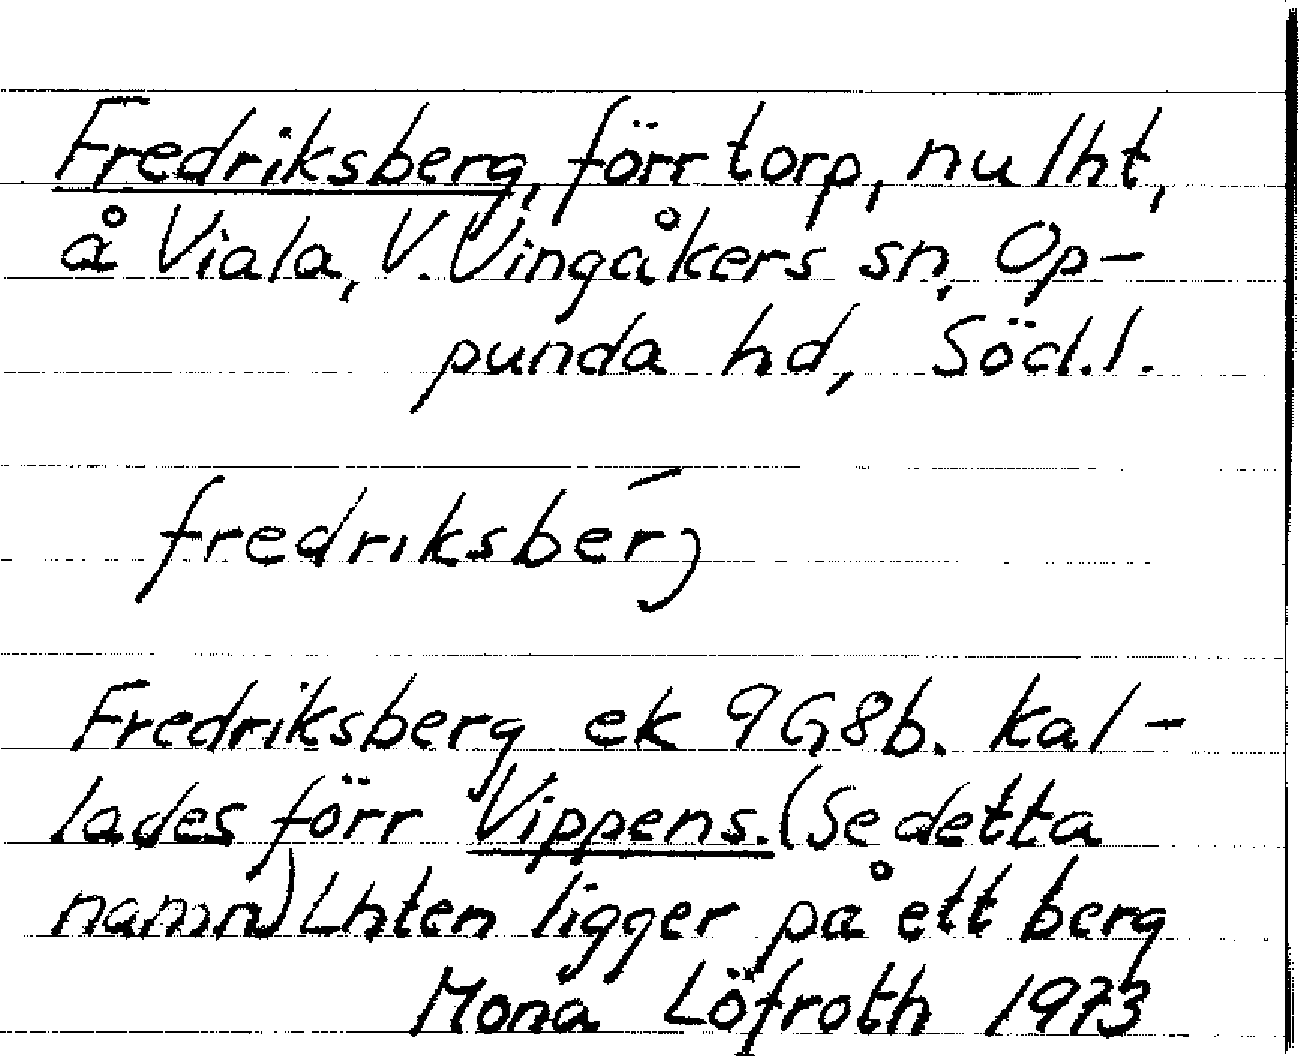 Fredriksberg, förr torp, nu lht,
å Viala, V. Vingåkers sn, Op-
punda hd, Söd.l.
fredrıksbérj
Fredriksberg ek 9G8b. Kal-
lades förr Vippens. (Se detta
namn) Lhten ligger på ett berg
Mona Löfroth 1973